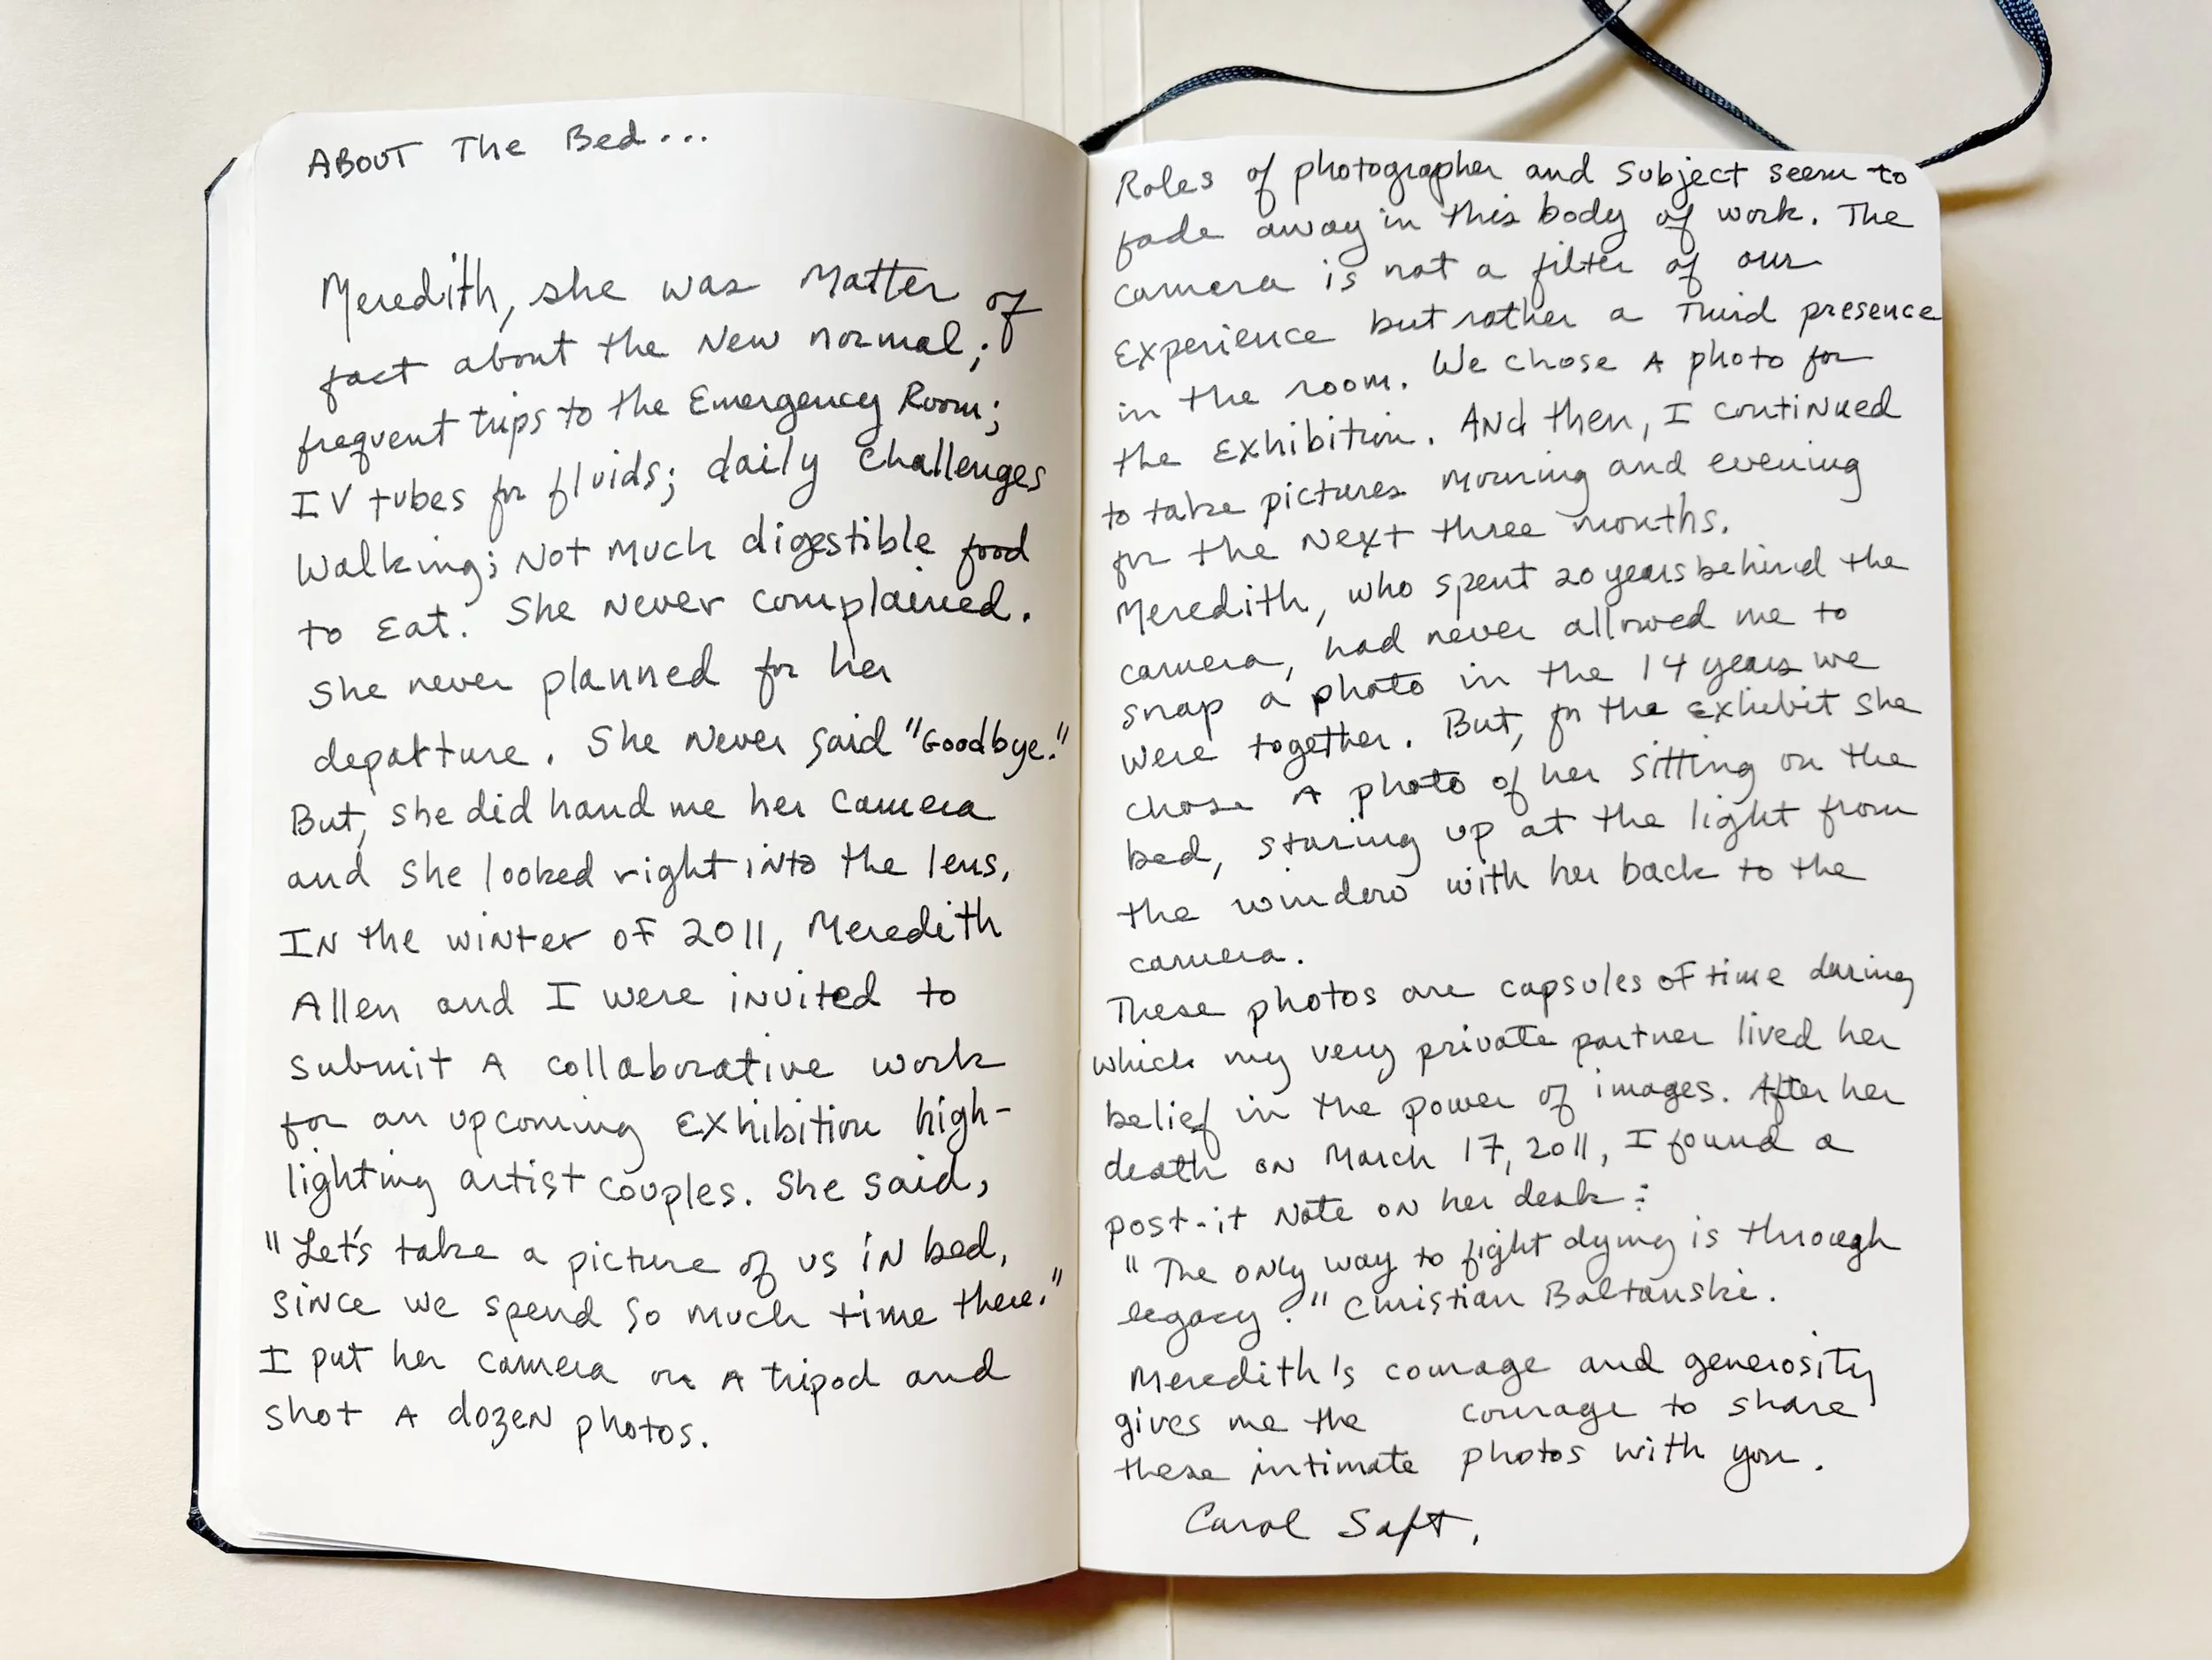 ABOUT The Bed...
Meredith, she was Matter of
fact about the New normal;
frequent trips to the Emergency Room;
IV tubes for fluids; daily challenges
Walking; Not Much digestible food
to Eat. She Never complained.
She never planned for her
departure. She Never said "Goodbye."
But, she did hand me her camera
and she looked right into the lens.
IN the winter of 2011, Meredith
Allen and I were invited to
submit A collaborative work
for an upcoming Exhibition high-
lighting artist couples. She said,
"Let's take a picture of us in bed,
since we spend so much time there."
I put her camera on A tripod and
shot A dozen photos.
Roles of photographer and Subject seem to
fade away in this body of work. The
camera is not a filter of our
Experience but rather a Third presence
in the room. We chose A photo for
the Exhibition. And then, I continued
to take pictures morning and evening
for the Next three months.
Meredith, who spent 20 years behind the
camera, had never allowed me to
snap a photo in the 14 years we
were together. But, for the exhibit she
chose A photo of her sitting on the
bed, staring up at the light from
the window with her back to the
camera.
These photos are capsules of time during
which my very private partner lived her
belief in the power of images. After her
death on March 17, 2011, I found a
post-it Note on her desk:
"The only way to fight dying is through
legacy." Christian Boltanski.
Meredith's courage and generosity
gives me the courage to share
these intimate photos with you.
Carol Saft.